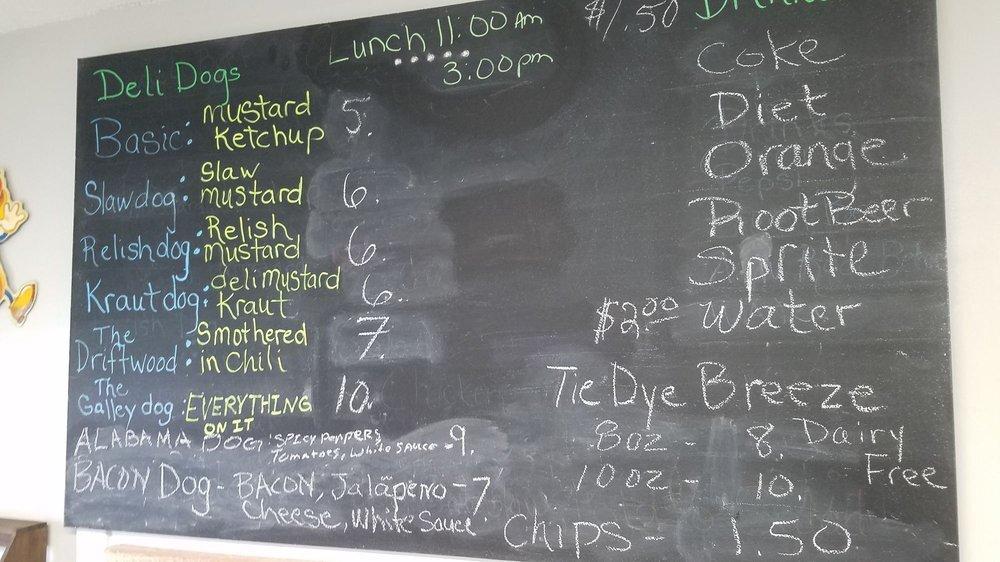 Lunch 11:00 Am
3:00pm
Deli Dogs
Basic: mustard
Ketchup 5.
Slawdog: Slaw
mustard 6.
Relishdog: Relish
Mustard 6.
Krautdog: deli Mustard
Kraut 6.
The
Driftwood: Smothered
in Chili 7.
The
Galley dog: EVERYTHING
ON IT 10.
ALABAMA DOG: SPICY PEPPERS,
Tomatoes, White SAUCE - 9.
BACON Dog - BACON, Jalapeno - 7
Cheese, White Sauce
$1.50
Coke
Diet
Orange
Root Beer
Sprite
$2.00 Water
Tie Dye Breeze
8oz - 8. Dairy
10oz - 10. Free
Chips - 1.50